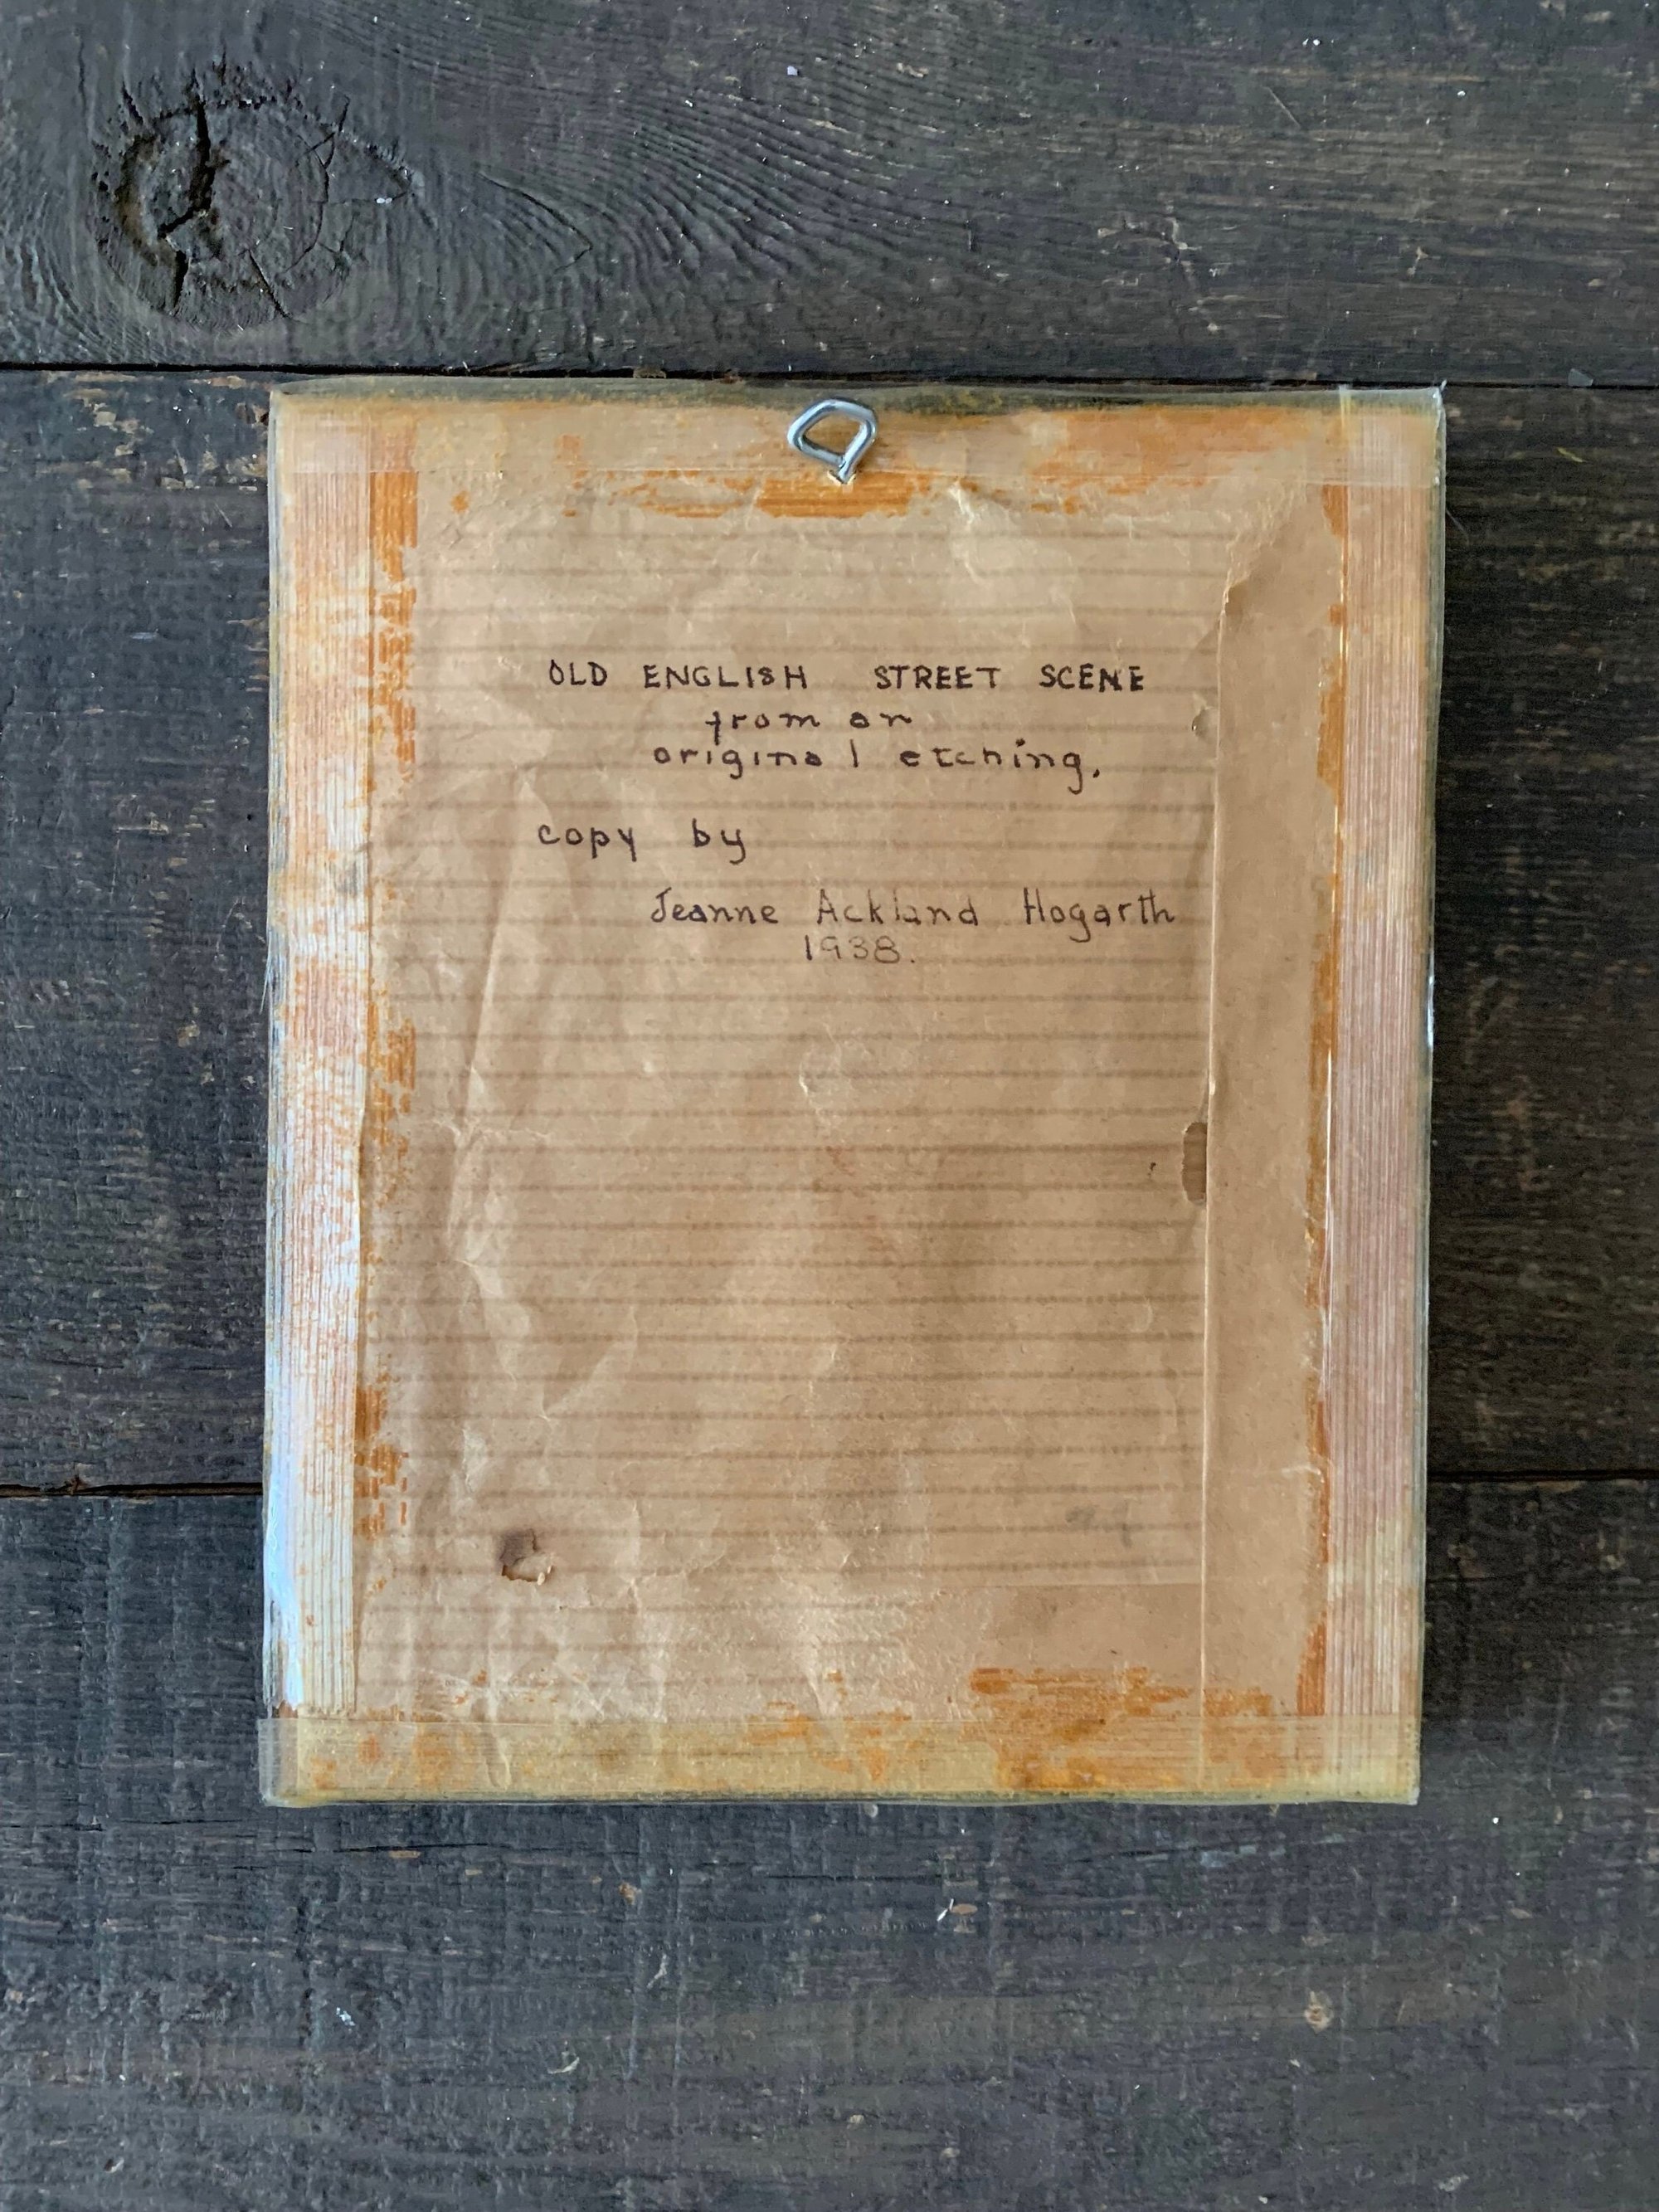 OLD ENGLISH STREET SCENE
from an
original etching.
copy by
Jeanne Ackland Hogarth
1938.